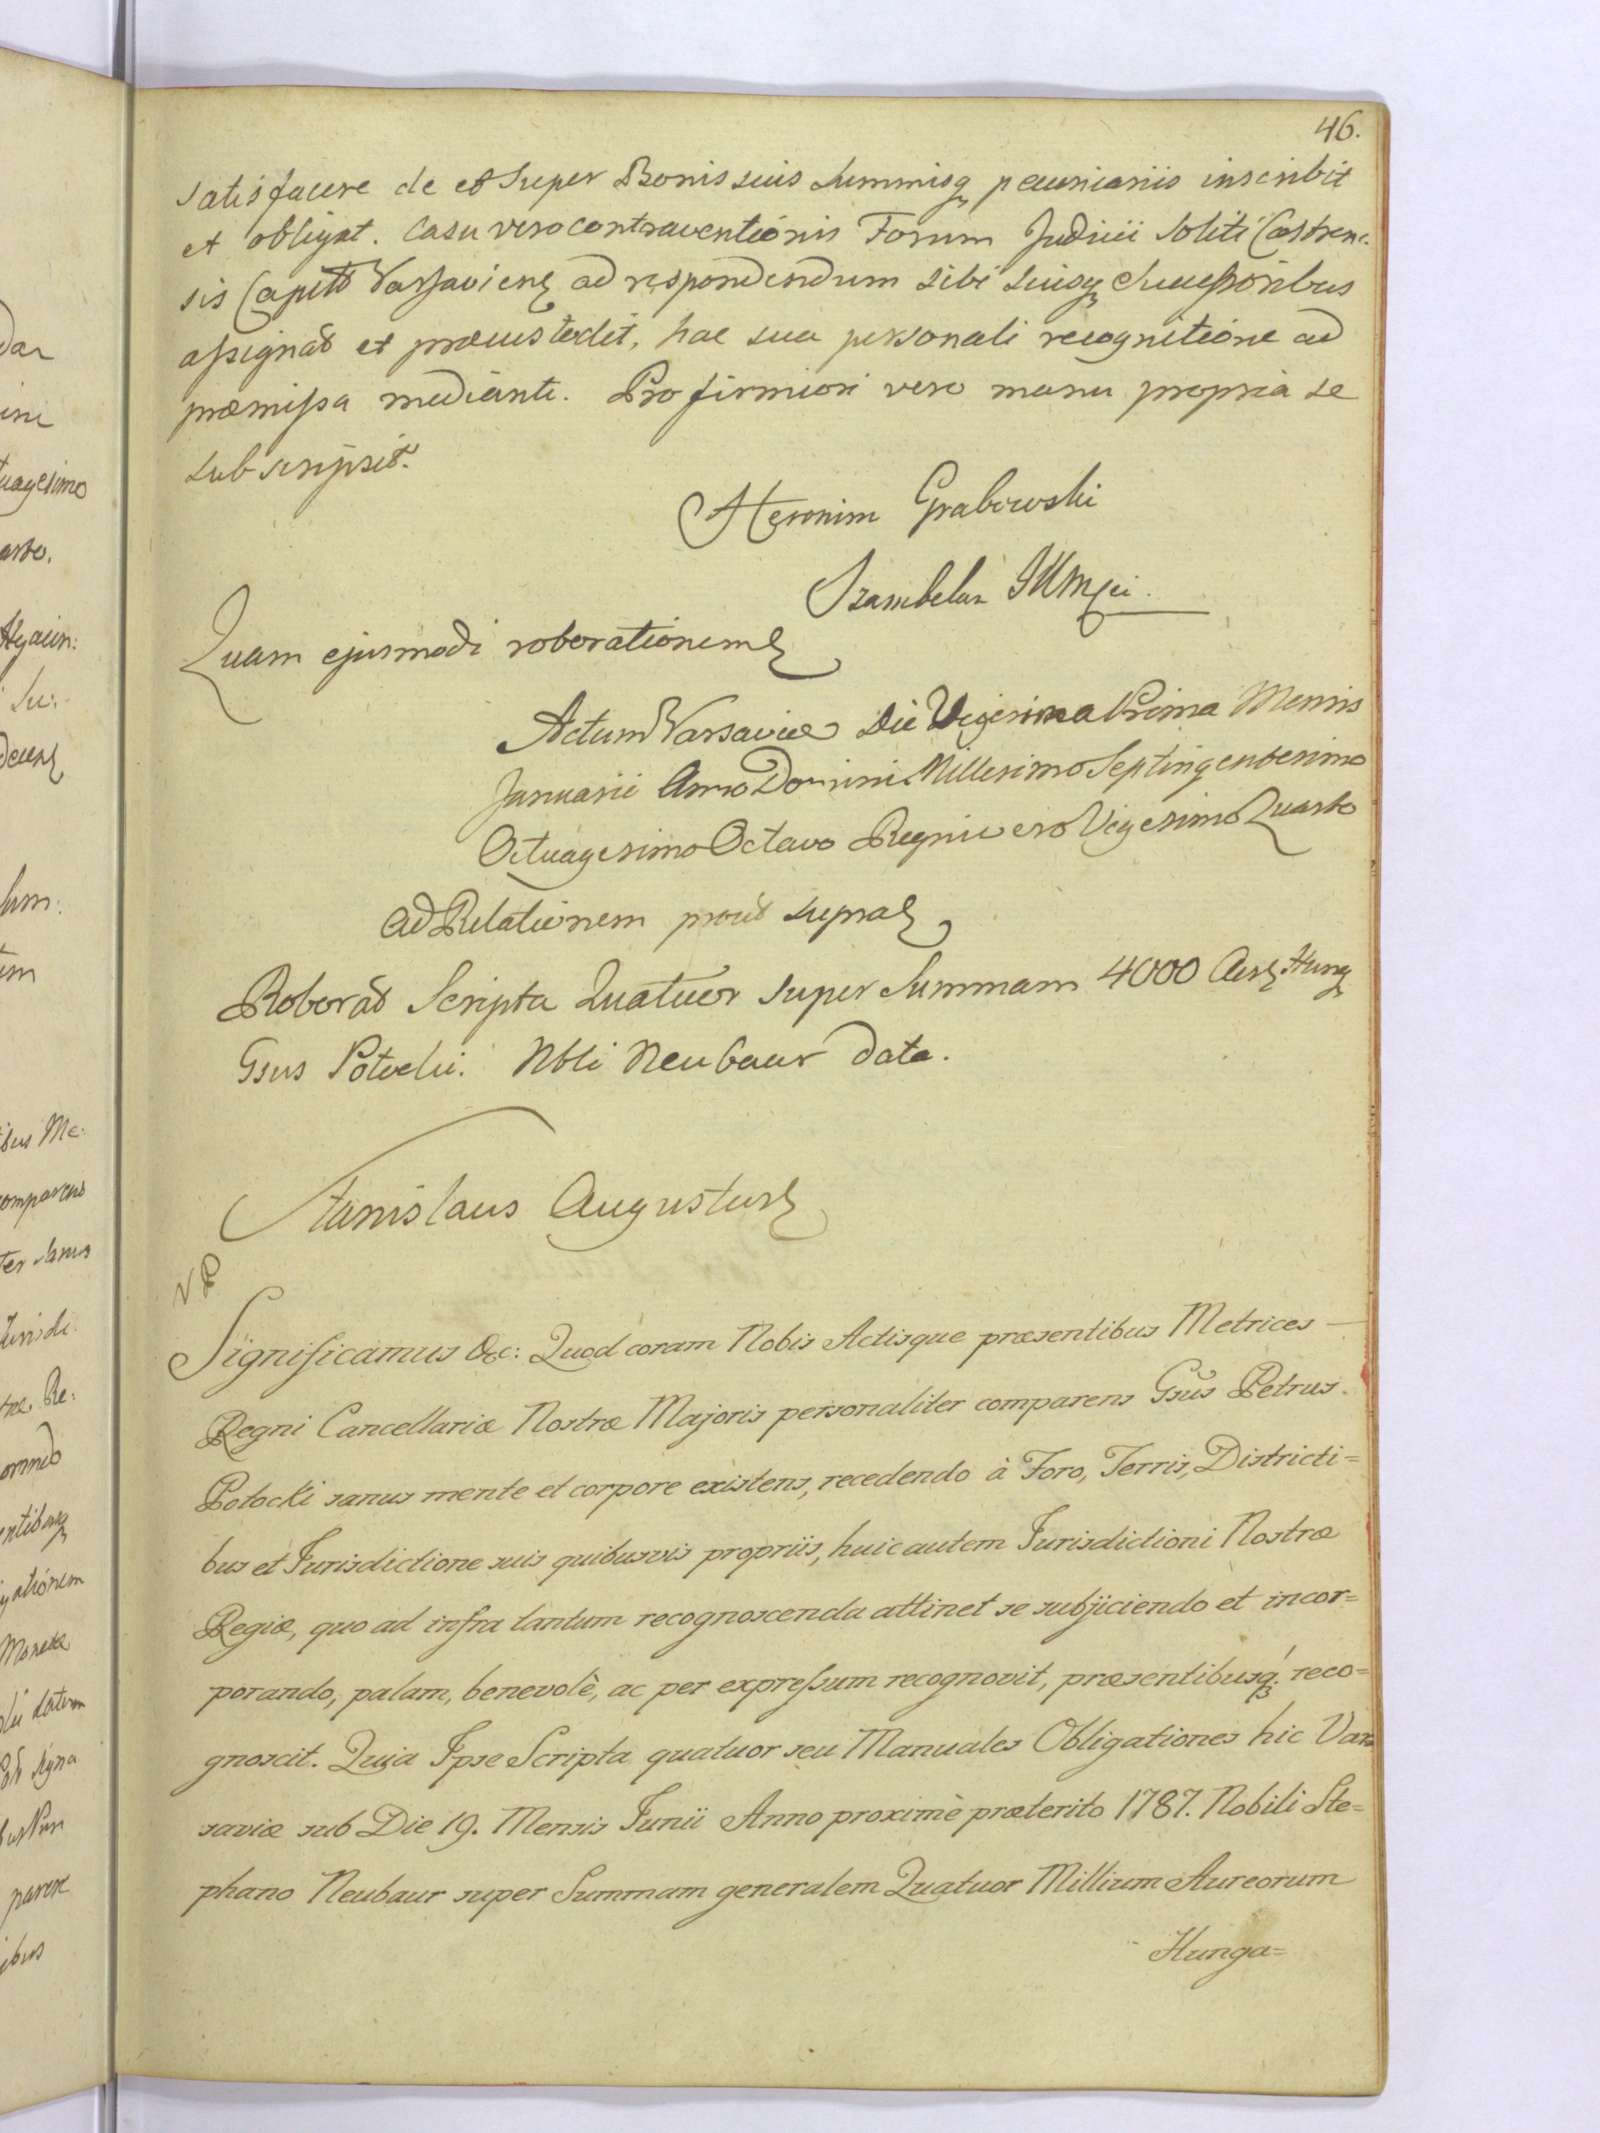 46.
satisfacere de et super Bonis suis Summisq pecuniariis inscribit
et obligat. Casu vero contraventionis Forum Judicii soliti Castren:
sis Capitlis Varsavien ad respondendum sibi suisq Successoribus
assignat et præcustodit, hac sua personali recognitione ad
præmissa mediante. Pro firmiori vero manu propria se
subscripsit.
Heronim Grabowski
Szambelan JKMsci.
Quam ejusmodi roborationem
Actum Varsaviæ Die Vigesima Prima Mensis
Januarii Anno Domini Millesimo Septingentesimo
Octuagesimo Octavo Regni vero Vigesimo Quarto
Ad Relationem prout supra
Roborat Scripta Quatuor super Summam 4000 Aur Hung
Gsus Potocki. Nbli Neubaur data.
Stanislaus Augustus
VP
Significamus &c: Quod coram Nobis Actisque præsentibus Metrices —
Regni Cancellariæ Nostræ Majoris personaliter comparens Gsus Petrus
Potocki sanus mente et corpore existens, recedendo à Foro, Terris, Districti=
bus et Jurisdictione suis quibusvis propriis, huic autem Jurisdictioni Nostræ
Regiæ, quo ad infra tantum recognoscenda attinet se subjiciendo et incor=
porando, palam, benevolè, ac per expressum recognovit, præsentibusq; reco=
gnoscit. Quia Ipse Scripta quatuor seu Manuales Obligationes hic Var=
saviæ sub Die 19. Mensis Junii Anno proximè præterito 1787. Nobili Ste=
phano Neubaur super Summam generalem Quatuor Millium Aureorum
Hunga=